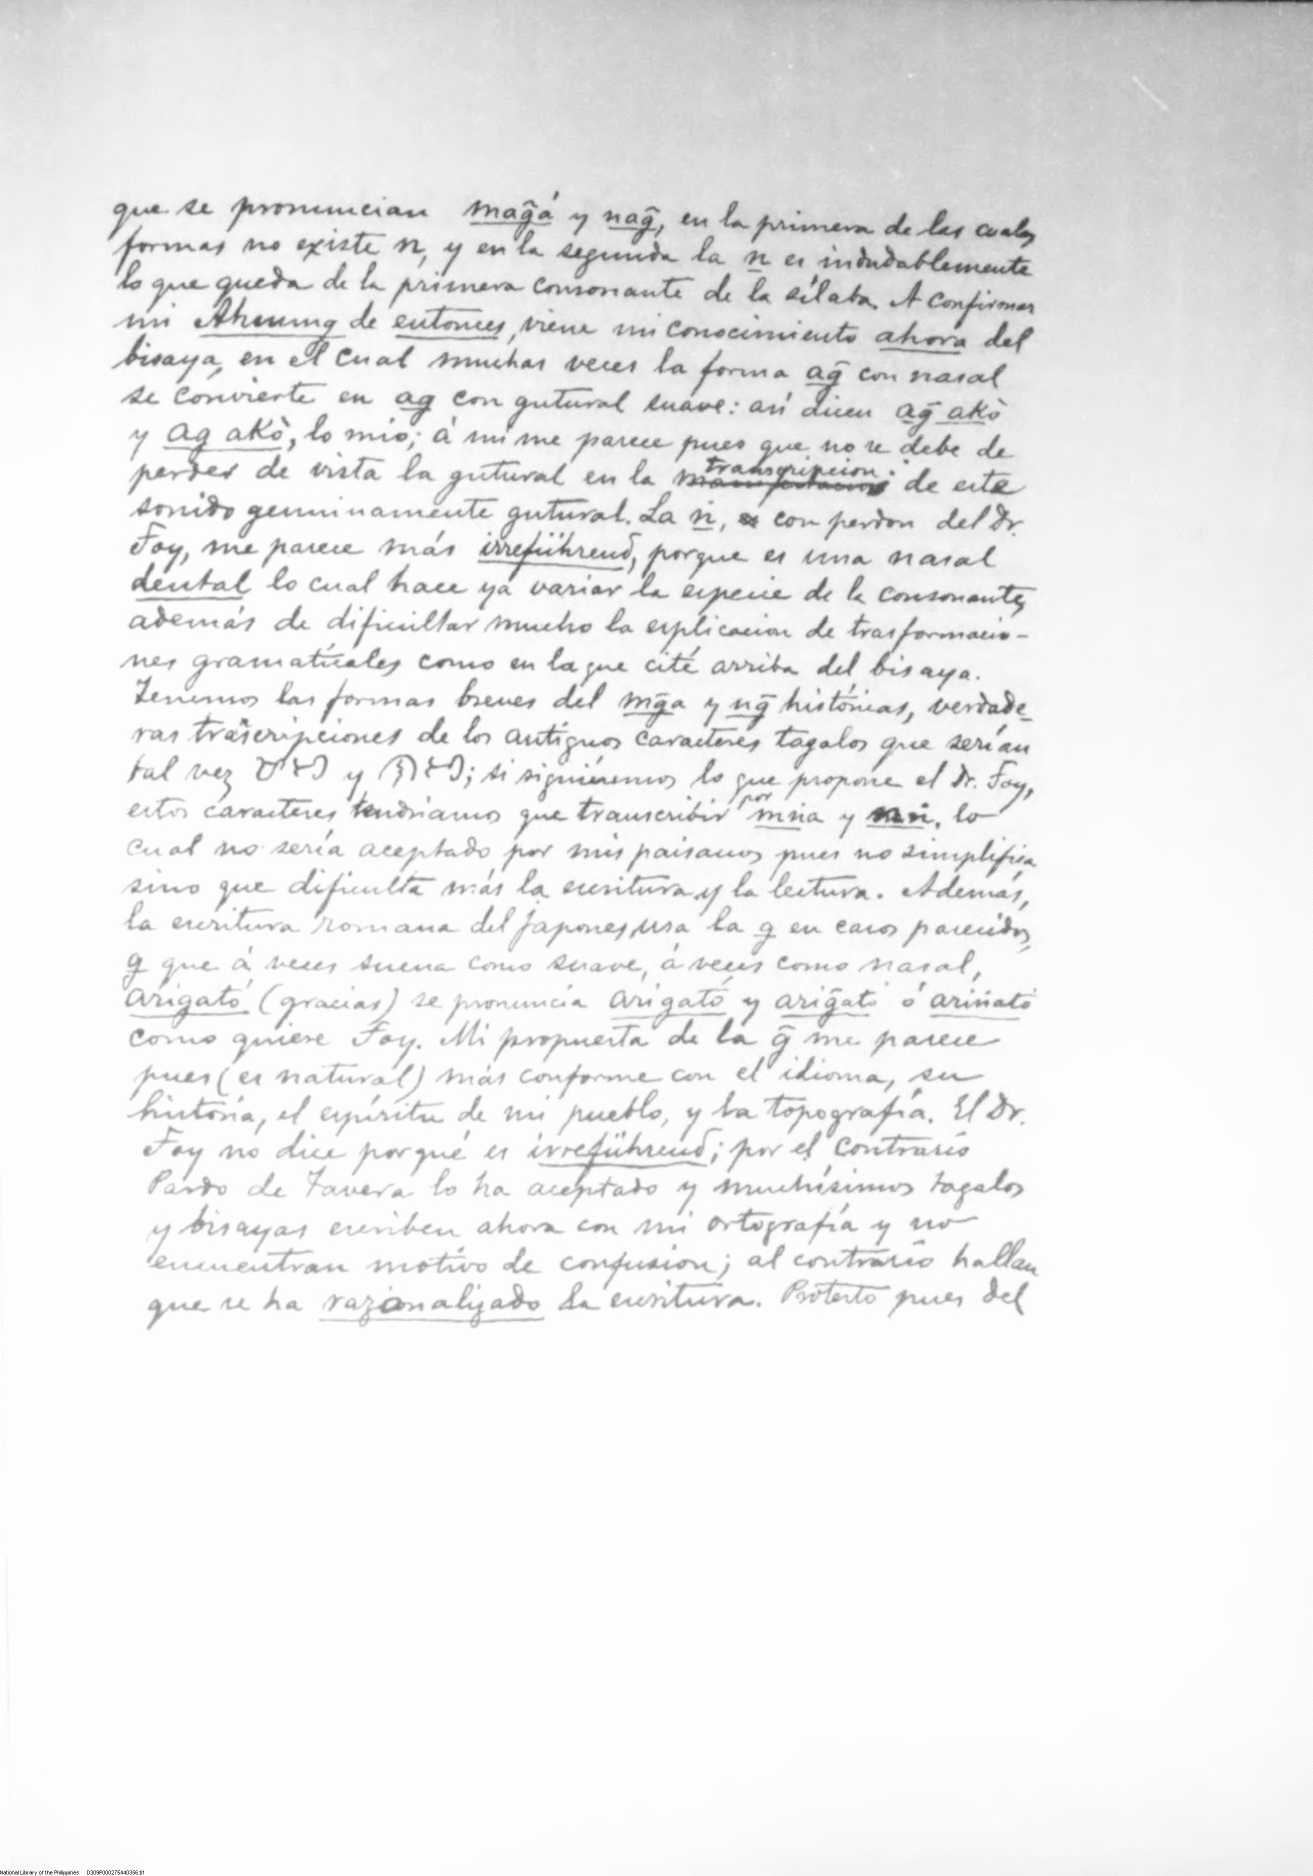 que se pronuncian mag̃á y nag̃, en la primera de las cuales
formas no existe n, y en la segunda la n es indudablemente
lo que queda de la primera consonante de la sílaba. A confirmar
mi Ahnung de entonces, viene mi conocimiento ahora del
bisaya, en el cual muchas veces la forma ag̃ con nasal
se convierte en ag con gutural suave: así dicen ag̃ akò
y ag akò, lo mío; á mi me parece pues que no se debe de
perder de vista la gutural en la transcripcion de este
sonido genuinamente gutural. La ṅ, con perdon del Dr.
Foy, me parece más irreführend, porque es una nasal
dental lo cual hace ya variar la especie de la consonante,
además de dificultar mucho la esplicacion de trasformacio-
nes gramaticales como en la que cité arriba del bisaya.
Tenemos las formas breves del mg̃a y ng̃ históricas, verdade-
ras transcripciones de los antiguos caracteres tagalos que serían
tal vez y ; si siguiéramos lo que propone el Dr. Foy,
estos caracteres tendríamos que transcribir por mṅa y nṅ, lo
cual no sería aceptado por mis paisanos pues no simplifica
sino que dificulta más la escritura y la lectura. Además,
la escritura romana del japones, usa la g en casos parecidos,
g que á veces suena como suave, á veces como nasal,
arigató (gracias) se pronuncia arigató y arig̃ató ó ariṅató
como quiere Foy. Mi propuesta de la g̃ me parece
pues (es natural) más conforme con el idioma, su
historia, el espíritu de mi pueblo, y la topografía. El Dr.
Foy no dice porqué es irreführend; por el contrario
Pardo de Tavera lo ha aceptado y muchísimos tagalos
y bisayas escriben ahora con mi ortografía y no
encuentran motivo de confusion; al contrario hallan
que se ha razonalizado la escritura. Protesto pues del
National Library of the Philippines